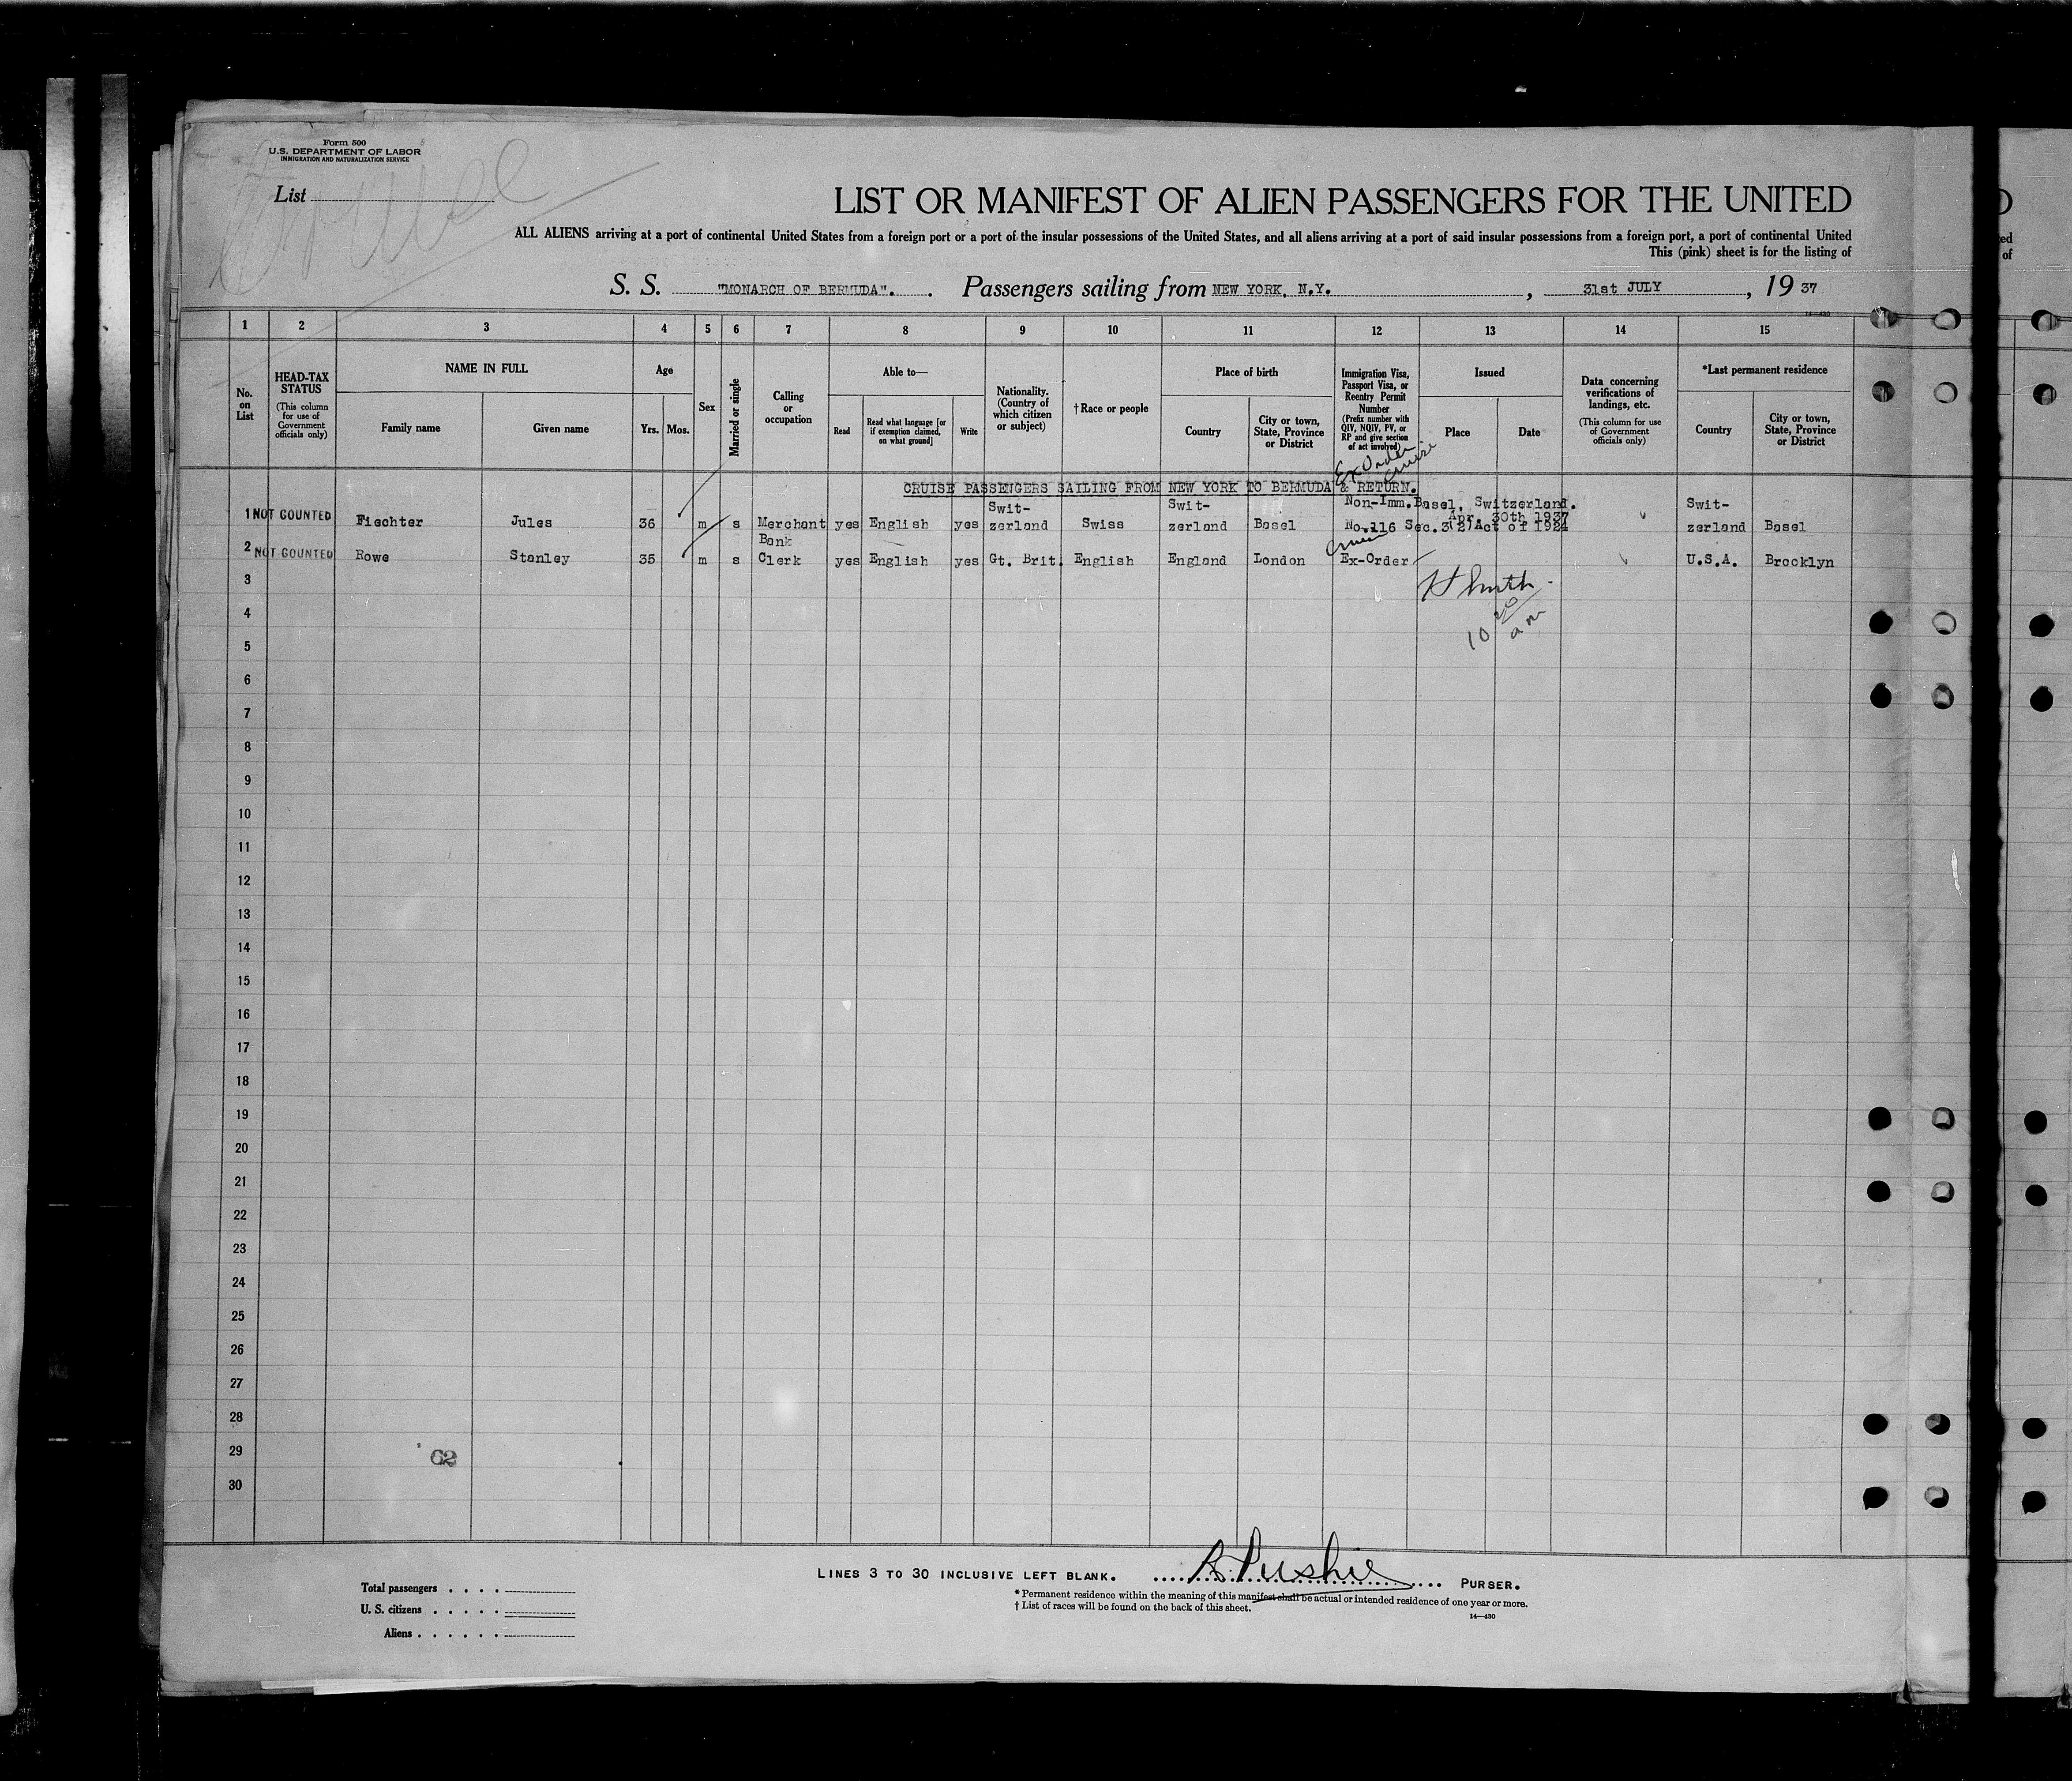 Form 500
U.S. DEPARTMENT OF LABOR
IMMIGRATION AND NATURALIZATION SERVICE
List
LIST OR MANIFEST OF ALIEN PASSENGERS FOR THE UNITED
ALL ALIENS arriving at a port of continental United States from a foreign port or a port of the insular possessions of the United States, and all aliens arriving at a port of said insular possessions from a foreign port, a port of continental United
This (pink) sheet is for the listing of
S. S. "MONARCH OF BERMUDA". Passengers sailing from NEW YORK, N.Y., 31st JULY, 19 37
14—430
1 2 3 4 5 6 7 8 9 10 11 12 13 14 15
No. on List
HEAD-TAX STATUS (This column for use of Government officials only)
NAME IN FULL
Family name Given name
Age
Yrs. Mos.
Sex
Married or single
Calling or occupation
Able to—
Read Read what language [or if exemption claimed, on what ground] Write
Nationality. (Country of which citizen or subject)
†Race or people
Place of birth
Country City or town, State, Province or District
Immigration Visa, Passport Visa, or Reentry Permit Number (Prefix number with QIV, NQIV, PV, or RP and give section of act involved)
Issued
Place Date
Data concerning verifications of landings, etc. (This column for use of Government officials only)
*Last permanent residence
Country City or town, State, Province or District
Ex Order
Cruise
CRUISE PASSENGERS SAILING FROM NEW YORK TO BERMUDA & RETURN.
Swit- Swit- Non-Imm. Basel, Switzerland. Swit-
Apr. 30th 1937
1 NOT COUNTED Fiechter Jules 36 m s Merchant yes English yes zerland Swiss zerland Basel No.116 Sec.3(2)Act of 1924 zerland Basel
Bank Cruise
2 NOT COUNTED Rowe Stanley 35 m s Clerk yes English yes Gt. Brit. English England London Ex-Order U.S.A. Brooklyn
3
H Smith
4
10 20 am
5
6
7
8
9
10
11
12
13
14
15
16
17
18
19
20
21
22
23
24
25
26
27
28
29
62
30
LINES 3 TO 30 INCLUSIVE LEFT BLANK. PURSER.
Total passengers
* Permanent residence within the meaning of this manifest shall be actual or intended residence of one year or more.
U. S. citizens
† List of races will be found on the back of this sheet.
14—430
Aliens